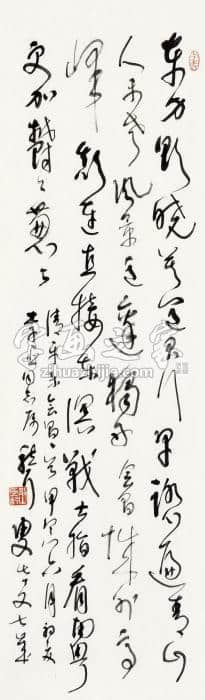 东方欲晓莫道君行早踏遍青山
人未老风景这边独好会昌城外高
峰颠连直接东溟战士指看南粤
更加郁々葱々
清平乐会昌 甲寅六月初
同志属 叟七十又七岁